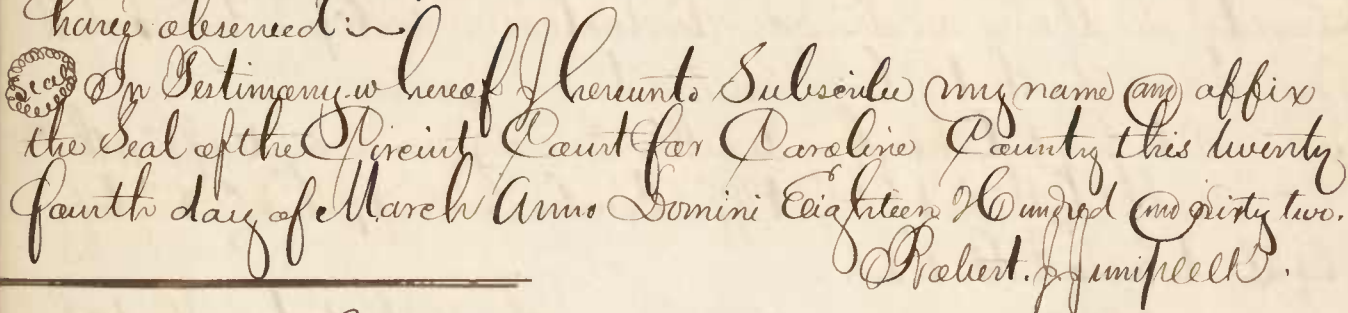 have observed :~
Seal In Testimony whereof I hereunto Subscribe my name and affix
the Seal of the Circuit Court for Caroline County this twenty
fourth day of March Anno Domini Eighteen Hundred and sixty two.
Robert. J. Jump Clk.